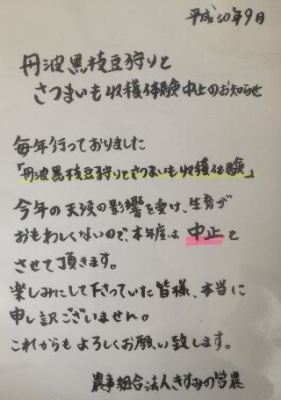 平成30年9月
丹波黒枝豆狩りと
さつまいも収穫体験中止のお知らせ
毎年行っておりました
「丹波黒枝豆狩りとさつまいも収穫体験」
今年の天候の影響を受け、生育が
おもわしくないので、本年度は中止と
させて頂きます。
楽しみにして下さっていた皆様、本当に
申し訳ございません。
これからもよろしくお願い致します。
農事組合法人きすみの営農